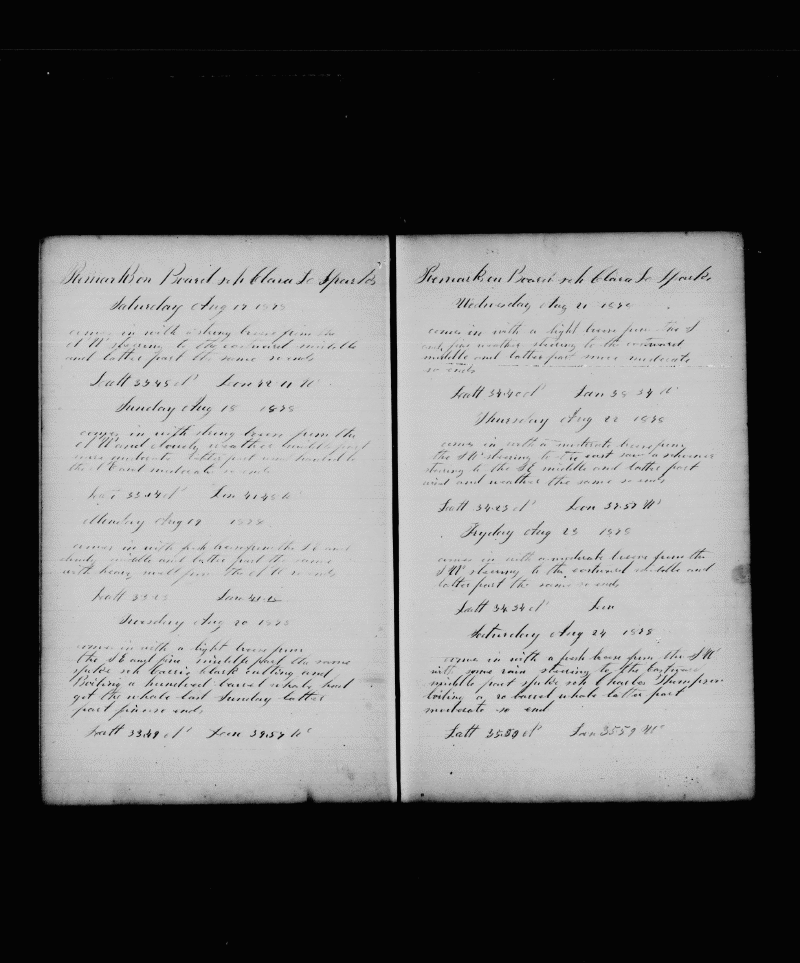 Remarks on Board sch Clara L Sparks
Saturday Aug 17 1878
comes in with strong breese from the
N W steering to the eastward middle
and latter part the same so ends
Latt 33.48 N Lon 42.11 W
Sunday Aug 18 1878
comes in with strong breese from the
N W and cloudy weather middle part
more moderate latter part wind hauled to
the N E and moderate so ends
Latt Lon 41.48 W
Monday Aug 19 1878
comes in with fresh breese from the N E and
cloudy middle and latter part the same
with heavy swell from the N E so ends
Latt Lon
Tuesday Aug 20 1878
comes in with a light breese from
the S E and fine middle part the same
spoke sch cutting and
Boiling a hundred barrel whale, had
got the whale last Sunday latter
part fine so ends
Latt 33.49 N Lon 39.57 W
Remarks on Board sch Clara L Sparks
Wednesday Aug 21 1878
comes in with a light breese from the S
and fine weather steering to the eastward
middle and latter part more moderate
so ends
Latt 34.40 N Lon 38.34 W
Thursday Aug 22 1878
comes in with a moderate breese from
the S W steering to the east saw a schooner
steering to the S E middle and latter part
wind and weather the same so ends
Latt 34.23 N Lon 37.57 W
Fryday Aug 23 1878
comes in with a moderate breese from the
S W steering to the eastward middle and
latter part the same so ends
Latt 34.34 N Lon
Saturday Aug 24 1878
comes in with a fresh breese from the S W
with some rain steering to the
middle part spoke sch Charles Thompson
boiling a 20 barrel whale latter part
moderate so end
Latt 35.50 N Lon 35 59 W